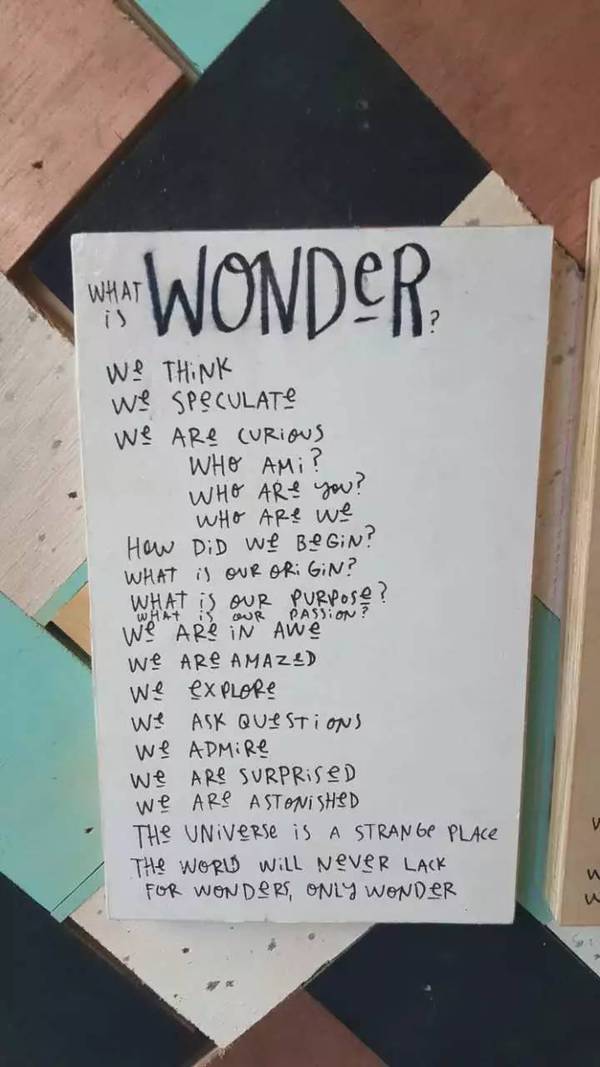 WHAT is WONDeR?
We THiNK
We SPeCULATe
We ARe CURiOUS
WHO AMi?
WHO ARe you?
WHO ARe We
HOW DiD We BeGiN?
WHAT iS OUR ORiGiN?
WHAT iS OUR PURPOSe?
WHAT iS OUR PASSiON?
We ARe iN AWe
We ARe AMAZeD
We eXPLORe
We ASK QUeSTiONS
We ADMiRe
We ARe SURPRiSeD
We ARe ASTONiSHeD
THe UNiVeRSe iS A STRANGe PLACe
THe WORLD WiLL NeVeR LACK
FOR WONDeRS, ONLY WONDeR